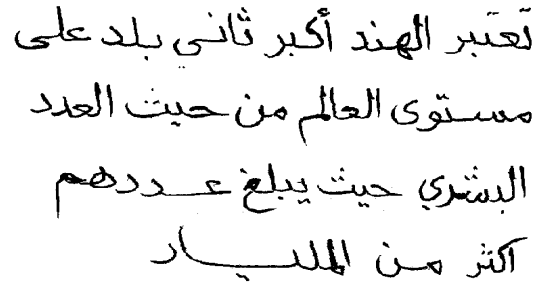 تعتبر الهند أكبر ثاني بلد على
مستوى العالم من حيث العدد
البشري حيث يبلغ عددهم
اكثر من المليار